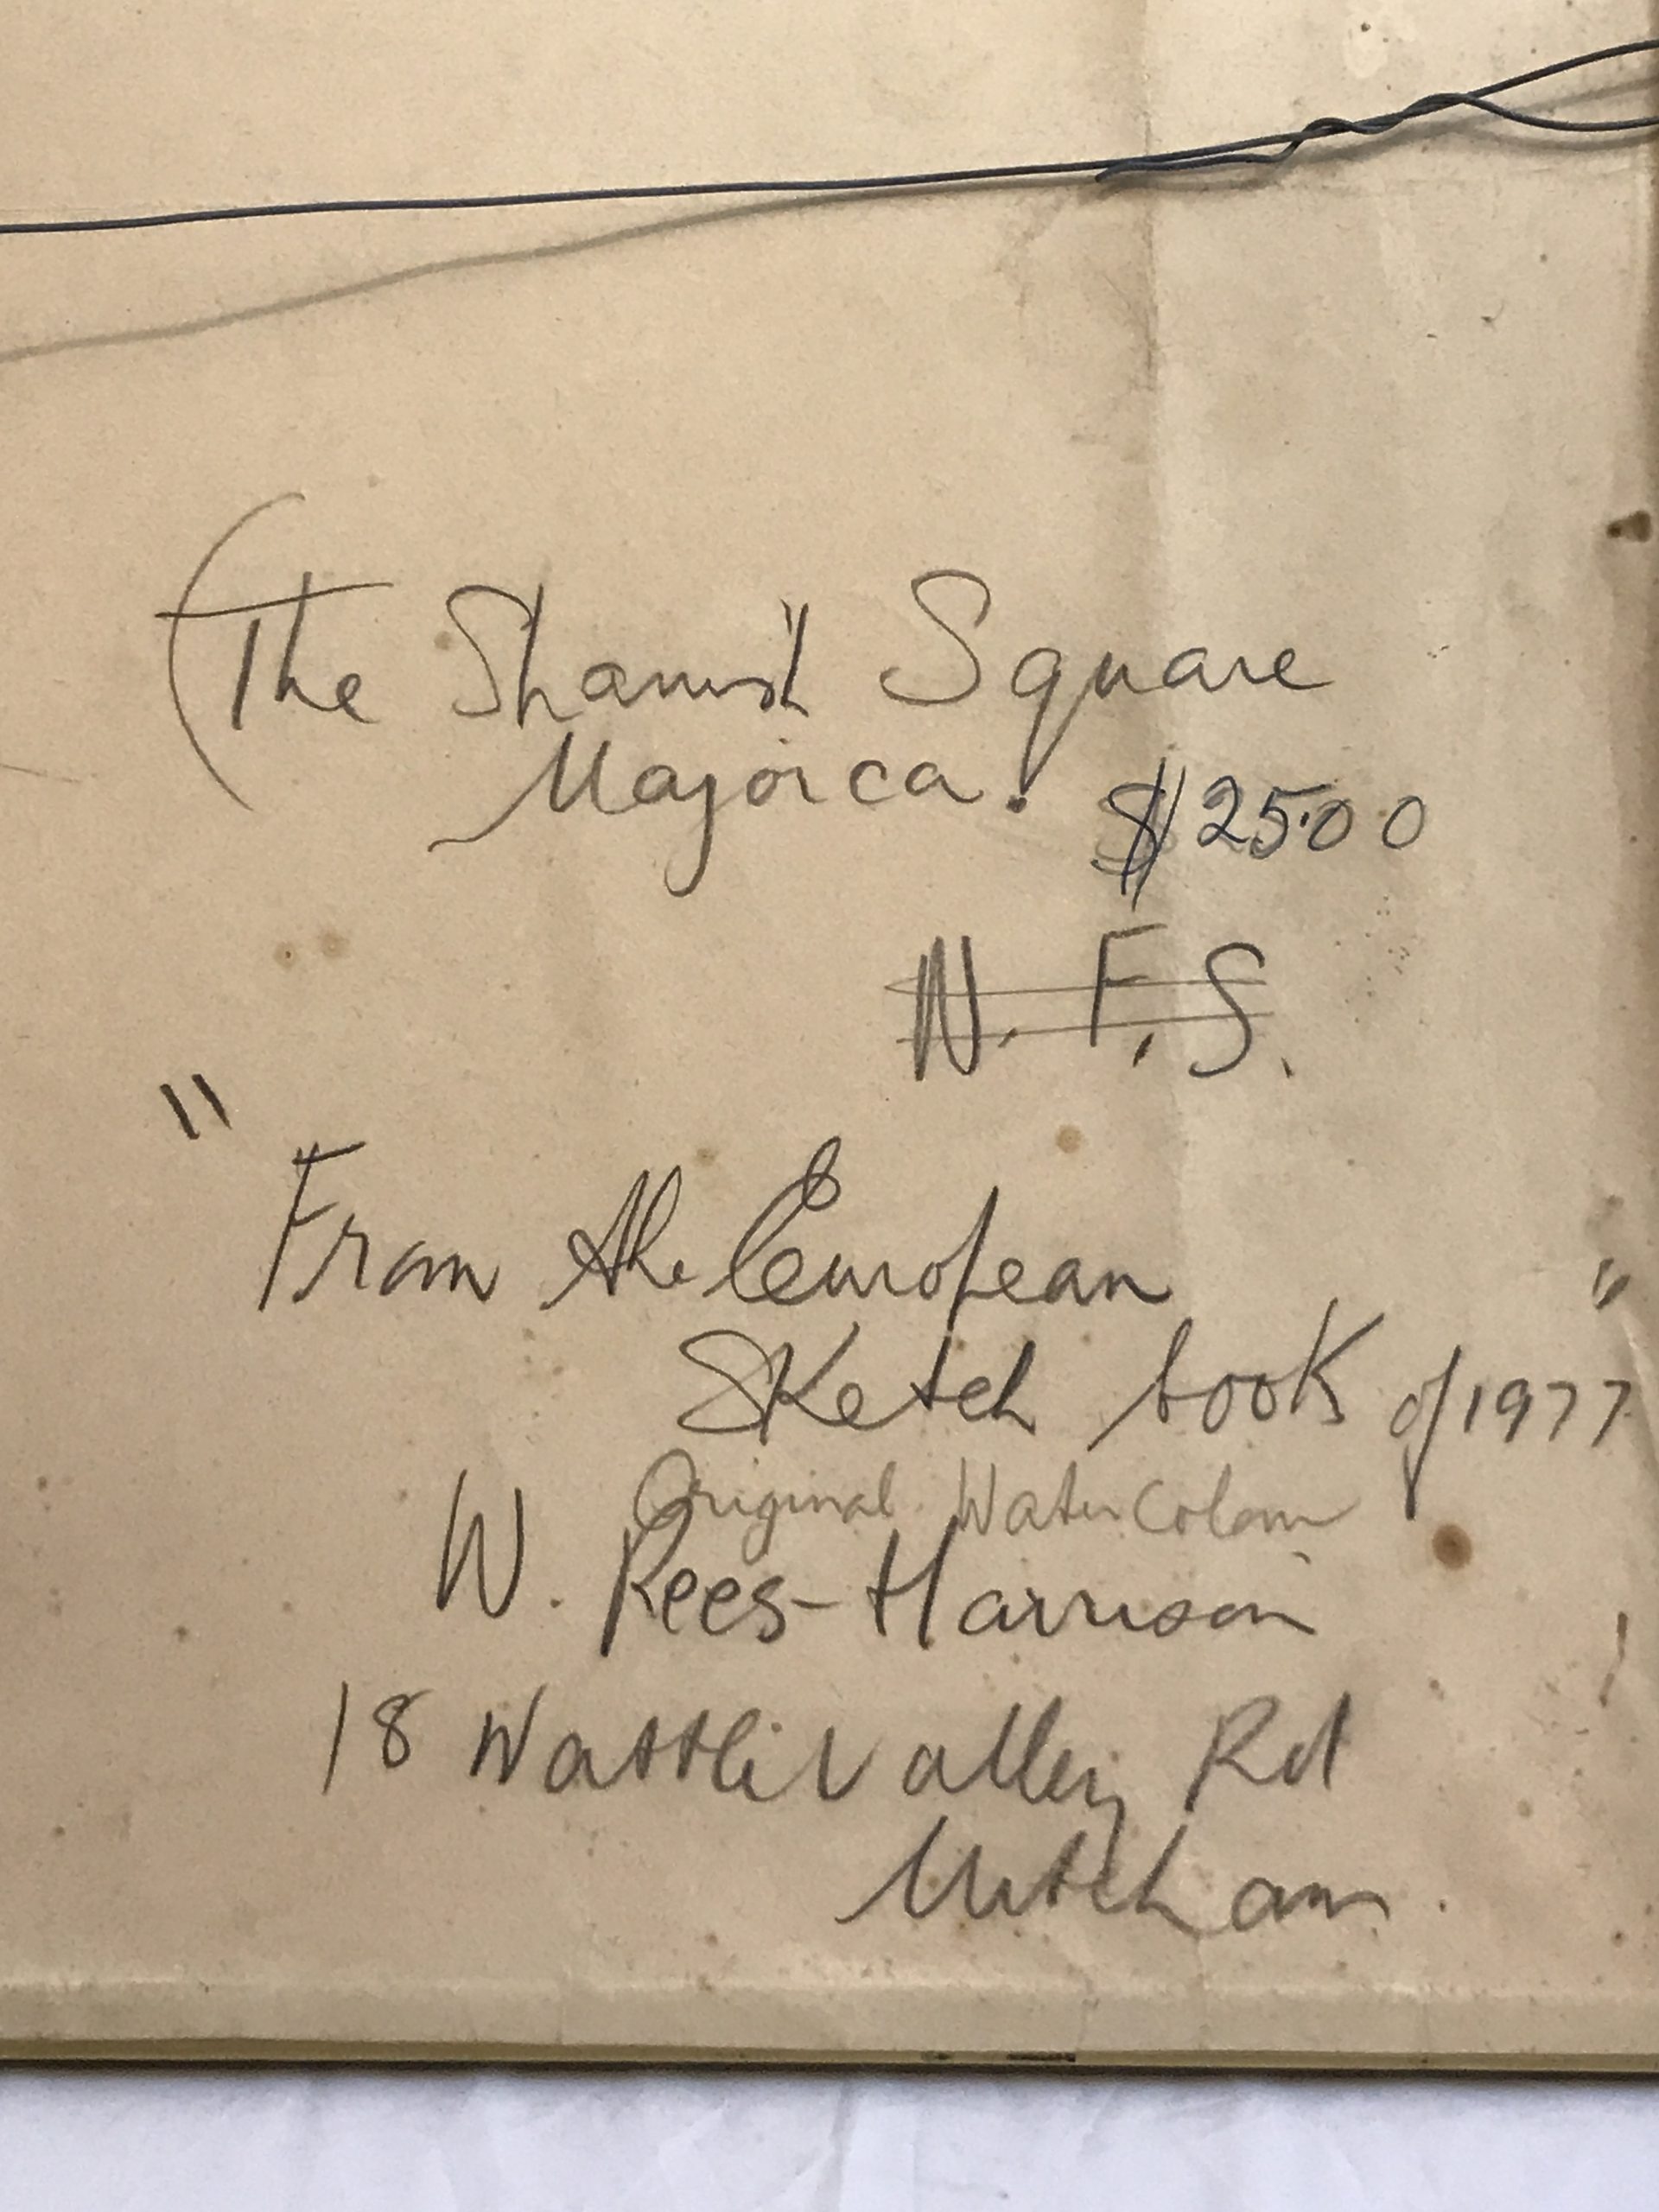 (The Spanish Square
Majorca. $25.00
N. F. S.
"From the European
Sketch book of 1977"
Original Water Colour
W. Rees-Harrison
18 Wattle Valley Rd
Mitcham.